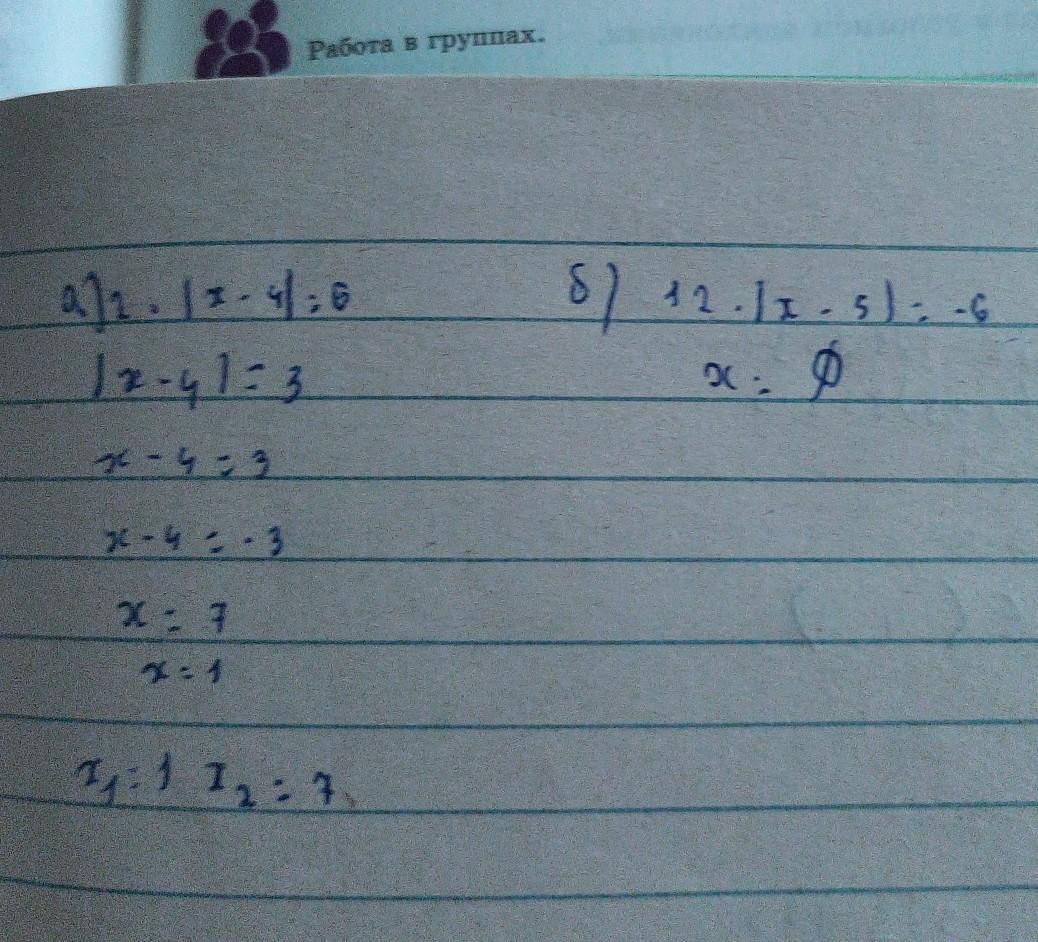 Работа в группах.
а) 2 · |x - 4| = 6
|x - 4| = 3
x - 4 = 3
x - 4 = -3
x = 7
x = 1
x₁ = 1 x₂ = 7
б) 12 · |x - 5| = -6
x = ∅